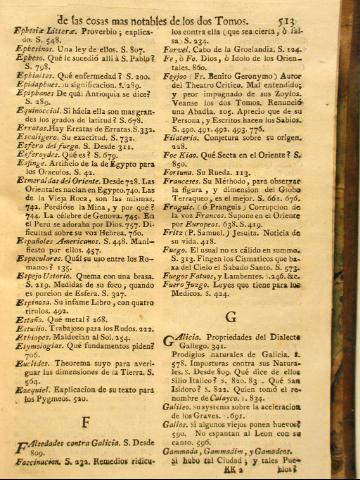 de las cosas mas notables de los dos Tomos. 513
Ephesiæ Litteræ. Proverbio; explica-
do. S. 548.
Ephesinos. Una ley de ellos. S. 807.
Epheso. Qué le sucedió allí à S. Pablo?
S. 798.
Ephialtes. Qué enfermedad? S. 200.
Epidaphus. su significacion. S. 289.
Epiphanes De quál Antioquia se dice?
S. 289.
Equinoccial. Si hácia ella son masgran-
des los grados de latitud? S. 678.
Erratas. Hay Erratas de Erratas. S. 332.
Escaligero. Su exactitud. S. 732.
Esfera del fuego. S. Desde 311.
Qué es? S. 679.
Esfinge. Artificio de la de Egypto para
los Oraculos. S. 42.
Esmeraldas del Oriente. Desde 728. Las
Orientales nacian en Egypto. 740. Las
de la Vieja Roca, son las mismas.
742. Perdióse la Mina, y por qué?
744. La célebre de Genova. 745. En
el Peru se adoraba por Dios. 757. Di-
ficultad sobre su voz Hebrea. 760.
Españoles Americanos. S. 448. Mani-
fiesto por ellos. 457.
Especulares. Quál su uso entre los Ro-
manos? 135.
Espejo Ustorio. Quema con una brasa.
S. 219. Medidas de su foco, quando
es porcion de Esfera. S. 327.
Espinosa. Su infame Libro, con quatro
titulos. 492.
Estaño. Qué metal? 268.
Estudio. Trabajoso para los Rudos. 222.
Ethiopes. Maldecian al Sol. 254.
Etymologias. Qué fundamentos piden?
706.
Euclides. Theorema suyo para averi-
guar las dimensiones de la Tierra. S.
564.
Ezequiel. Explicacion de su texto para
los Pygmeos. 520.
F
Falsedades contra Galicia. S. Desde
809.
Fascinacion. S. 232. Remedios ridicu-
los contra ella (que sea cierta, ò fal-
sa) S. 234.
Farvel. Cabo de la Groelandia. S. 124.
Fe, ò Fo. Dios, ò Idolo de los Orien-
tales. 860.
Feyjoó (Fr. Benito Geronymo) Autor
del Theatro Critico. Mal entendido;
y peor impugnado de sus Zoylos.
Veanse los dos Tomos. Renunció
una Abadía. 105. Aprecio que de su
Persona, y Escritos hacen los Sabios.
S. 490. 491. 492. 493. 776.
Filateria. Conjetura sobre su origen.
228.
Foe Kiao. Qué Secta en el Oriente? S.
850.
Fortuna. Su Rueda. 113.
Franceses. Su Méthodo, para observar
la figura, y dimension del Globo
Terraqueo, es el mejor. S. 661. 676.
Franguis. (ò Franguis) Corrupcion de
la voz Francos. Supone en el Oriente
por Europeos. 638. S. 419.
Fritz (P. Samuel.) Jesuita. Noticia de
su vida. 428.
Fuego. El usual no es cálido en summo.
S. 313. Fingen los Cismaticos que ba-
xa del Cielo el Sabado Santo. S. 573.
Fuegos Fatuos, y Lambentes. 246. &c.
Fuero Juzgo. Leyes que tiene para los
Medicos. S. 424.
G
Galicia. Propriedades del Dialecto
Gallego. 341.
Prodigios naturales de Galicia. S.
578. Imposturas contra sus Natura-
les. S. Desde 809. Qué dice de ellos
Silio Italico? S. 820. 83 . Qué San
Isidoro? S. 822. Quien tomó el re-
nombre de Calayco. S. 834.
Galileo. su systema sobre la aceleracion
de los Graves. 691.
Gallos. si algunos viejos ponen huevos?
590. No espantan al Leon con su
canto. 596.
Gammada, Gammadim, y Gamadeos.
si hubo tal Ciudad; y tales Pue-
KK 2 blos?